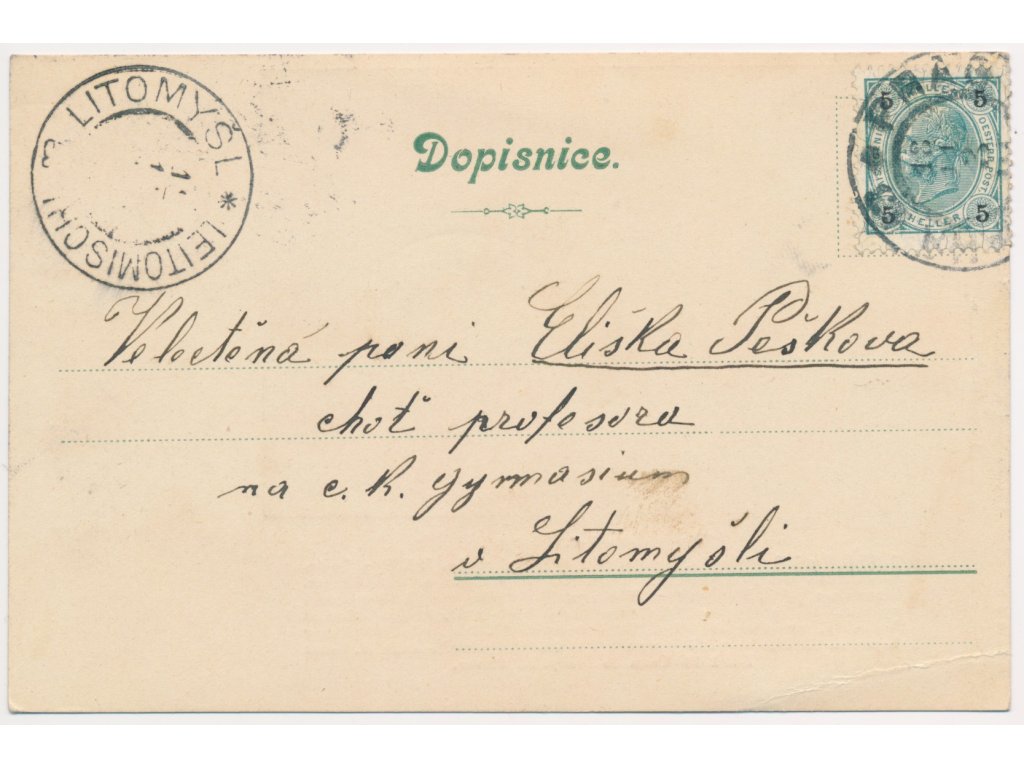 LITOMYŠL * LEITOMISCHL
Dopisnice.
5 HELLER 5
5 5
OESTERR.POST.
Velectěná paní Eliška Pešková
choť profesora
na c. k. gymnasium
v Litomyšli